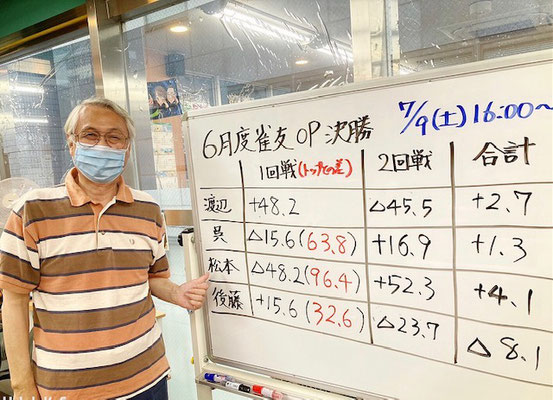 6月度雀友OP決勝
7/9(土)16:00〜
1回戦(トップとの差) 2回戦 合計
渡辺 +48.2 △45.5 +2.7
呉 △15.6(63.8) +16.9 +1.3
松本 △48.2(96.4) +52.3 +4.1
後藤 +15.6(32.6) △23.7 △8.1